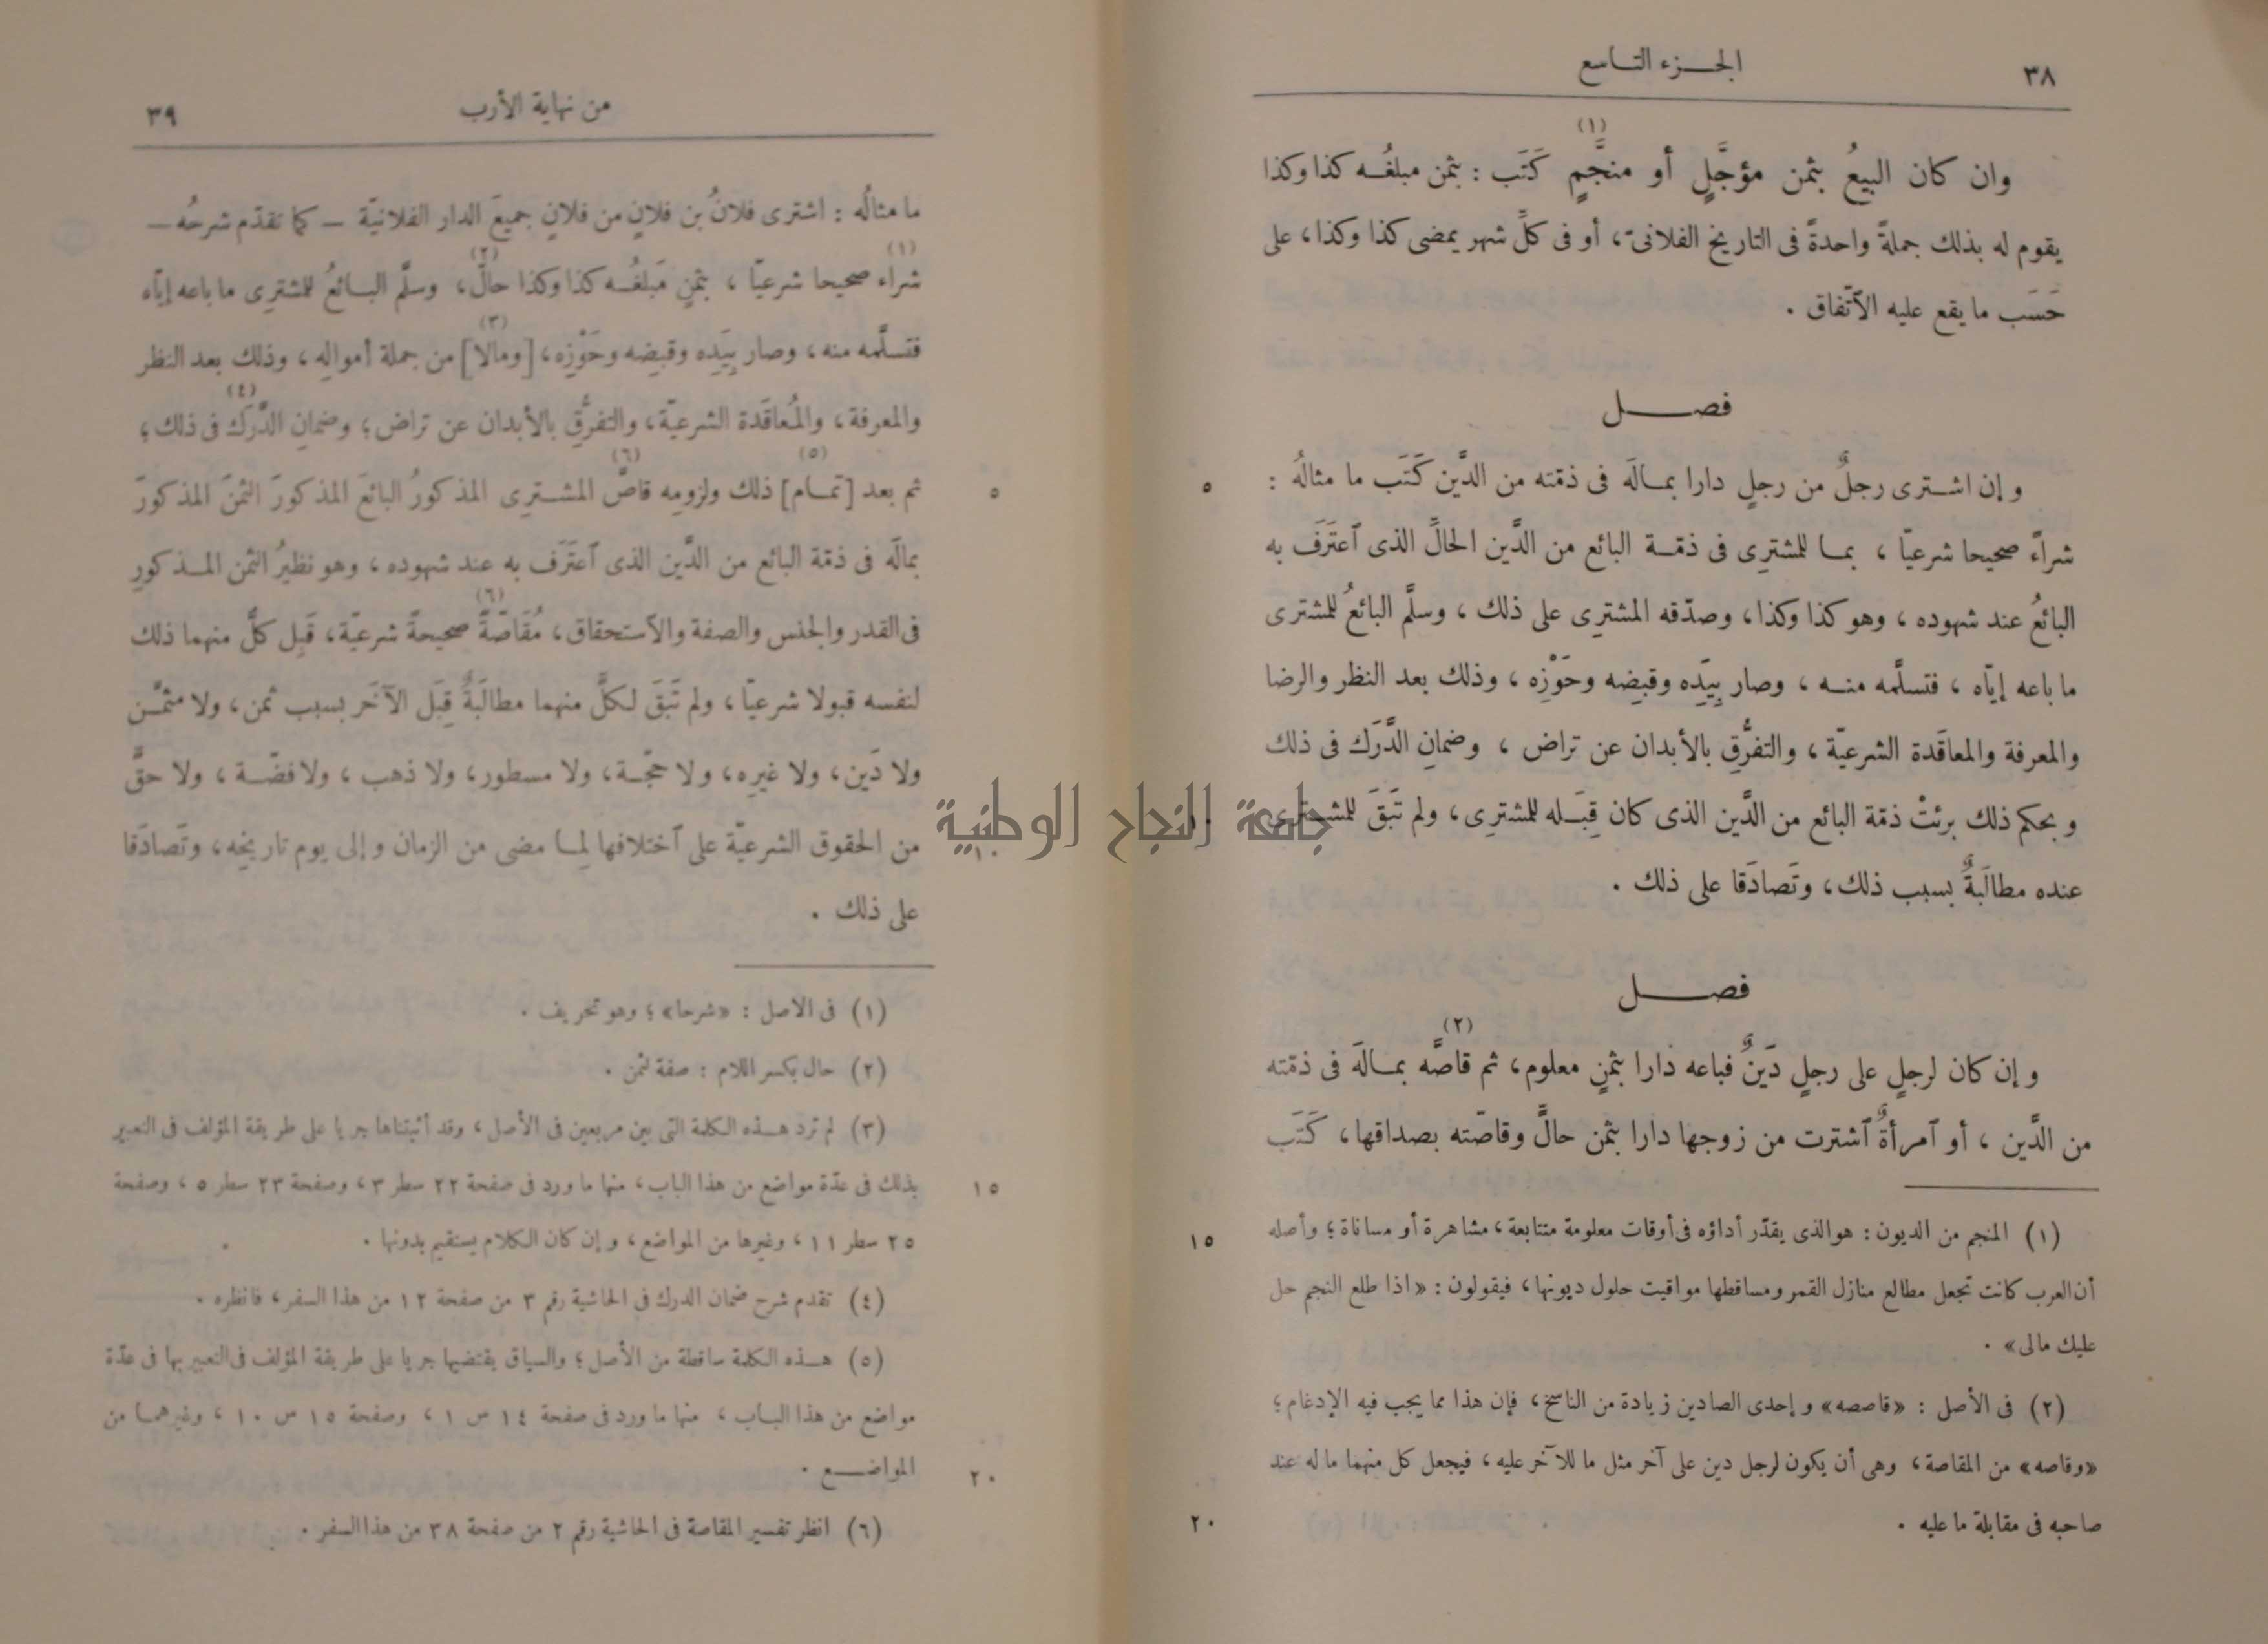 ٣٨
الجزء التاسع
وان كان البيعُ بثمن مؤجَّلٍ أو منجَّمٍ (١) كَتَب : بثمن مبلغُه كذا وكذا
يقوم له بذلك جملةً واحدةً فى التاريخ الفلانىّ، أو فى كلِّ شهر يمضى كذا وكذا، على
حَسَب ما يقع عليه الٱتّفاق .
فصل
و إن اشترى رجلٌ من رجلٍ دارا بمالَه فى ذمّته من الدَّين كَتَب ما مثالُه :
٥
شراءً صحيحا شرعيّا ، بما للمشترِى فى ذمّة البائع من الدَّين الحالِّ الذى ٱعتَرَف به
البائعُ عند شهوده ، وهو كذا وكذا، وصدّقه المشترِى على ذلك ، وسلَّم البائعُ للمشترى
ما باعه إيّاه ، فتسلَّمه منه ، وصار بِيَدِه وقبضِه وحَوْزِه ، وذلك بعد النظر والرضا
والمعرفة والمعاقَدة الشرعيّة ، والتفرُّقِ بالأبدان عن تراض ، وضمانِ الدَّرَك فى ذلك
و بحكم ذلك برئتْ ذمّة البائع من الدَّين الذى كان قِبَله للمشترِى ، ولم تَبَقَ للمشترى
١٠
عنده مطالَبةٌ بسبب ذلك، وتَصادَقا على ذلك .
فصل
و إن كان لرجلٍ على رجلٍ دَينٌ فباعه دارا بثمنٍ معلوم، ثم قاصَّه (٢) بمالَه فى ذمّته
من الدَّين ، أو ٱمرأةٌ ٱشترت من زوجها دارا بثمن حالٍّ وقاصّته بصداقها، كَتَب
(١) المنجم من الديون : هو الذى يقدّر أداؤه فى أوقات معلومة متتابعة، مشاهرة أو مساناة؛ وأصله
١٥
أن العرب كانت تجعل مطالع منازل القمر ومساقطها مواقيت حلول ديونها، فيقولون : «اذا طلع النجم حل
عليك مالى» .
(٢) فى الأصل : «قاصصه» و إحدى الصادين زيادة من الناسخ، فإن هذا مما يجب فيه الإدغام؛
«وقاصه» من المقاصة، وهى أن يكون لرجل دين على آخر مثل ما للآخر عليه، فيجعل كل منهما ما له عند
صاحبه فى مقابلة ما عليه .
٢٠
من نهاية الأرب
٣٩
ما مثالُه : اشترى فلانُ بن فلانٍ من فلانٍ جميعَ الدار الفلانيّة – كما تقدّم شرحُه –
شراء (١) صحيحا شرعيّا ، بثمنٍ مَبلغُه كذا وكذا حالٍّ (٢)، وسلَّم البائعُ للمشترِى ما باعه إيّاه
فتسلَّمه منه، وصار بِيَدِه وقبضِه وحَوْزِه، [ومالا] (٣) من جملة أموالِه، وذلك بعد النظر
والمعرفة، والمُعاقَدة الشرعيّة، والتفرُّقِ بالأبدان عن تراض؛ وضمانِ الدَّرَك (٤) فى ذلك؛
ثم بعد [تمام] (٥) ذلك ولزومِه قاصَّ (٦) المشترِى المذكورُ البائعَ المذكورَ الثمنَ المذكورَ
٥
بمالَه فى ذمّة البائع من الدَّين الذى ٱعتَرَف به عند شهوده، وهو نظيرُ الثمن المذكورِ
فى القدر والجنس والصفة والٱستحقاق، مُقَاصّةً (٦) صحيحةً شرعيّة، قَبِل كلٌّ منهما ذلك
لنفسه قبولا شرعيّا، ولم تَبَقَ لكلٍّ منهما مطالَبَةٌ قِبَل الآخَر بسبب ثمن، ولا مثمَّن
ولا دَين، ولا غيرِه، ولا حجّة، ولا مسطور، ولا ذهب، ولا فضّة، ولا حقٍّ
من الحقوق الشرعيّة على ٱختلافها لِما مضى من الزمان و إلى يوم تاريخِه، وتَصادَقا
١٠
على ذلك .
(١) فى الاصل : «شرحا»؛ وهو تحريف .
(٢) حال بكسر اللام : صفة لثمن .
(٣) لم ترد هذه الكلمة التى بين مربعين فى الأصل، وقد أثبتناها جريا على طريقة المؤلف فى التعبير
بذلك فى عدّة مواضع من هذا الباب، منها ما ورد فى صفحة ٢٢ سطر ٣، وصفحة ٢٣ سطر ٥، وصفحة
١٥
٢٥ سطر ١١، وغيرها من المواضع، و إن كان الكلام يستقيم بدونها .
(٤) تقدم شرح ضمان الدرك فى الحاشية رقم ٣ من صفحة ١٢ من هذا السفر، فانظره .
(٥) هذه الكلمة ساقطة من الأصل؛ والسياق يقتضيها جريا على طريقة المؤلف فى التعبير بها فى عدّة
مواضع من هذا الباب، منها ما ورد فى صفحة ١٤ س ١، وصفحة ١٥ س ١٠، وغيرهما من
المواضع .
٢٠
(٦) انظر تفسير المقاصة فى الحاشية رقم ٢ من صفحة ٣٨ من هذا السفر .
جامعة النجاح الوطنية